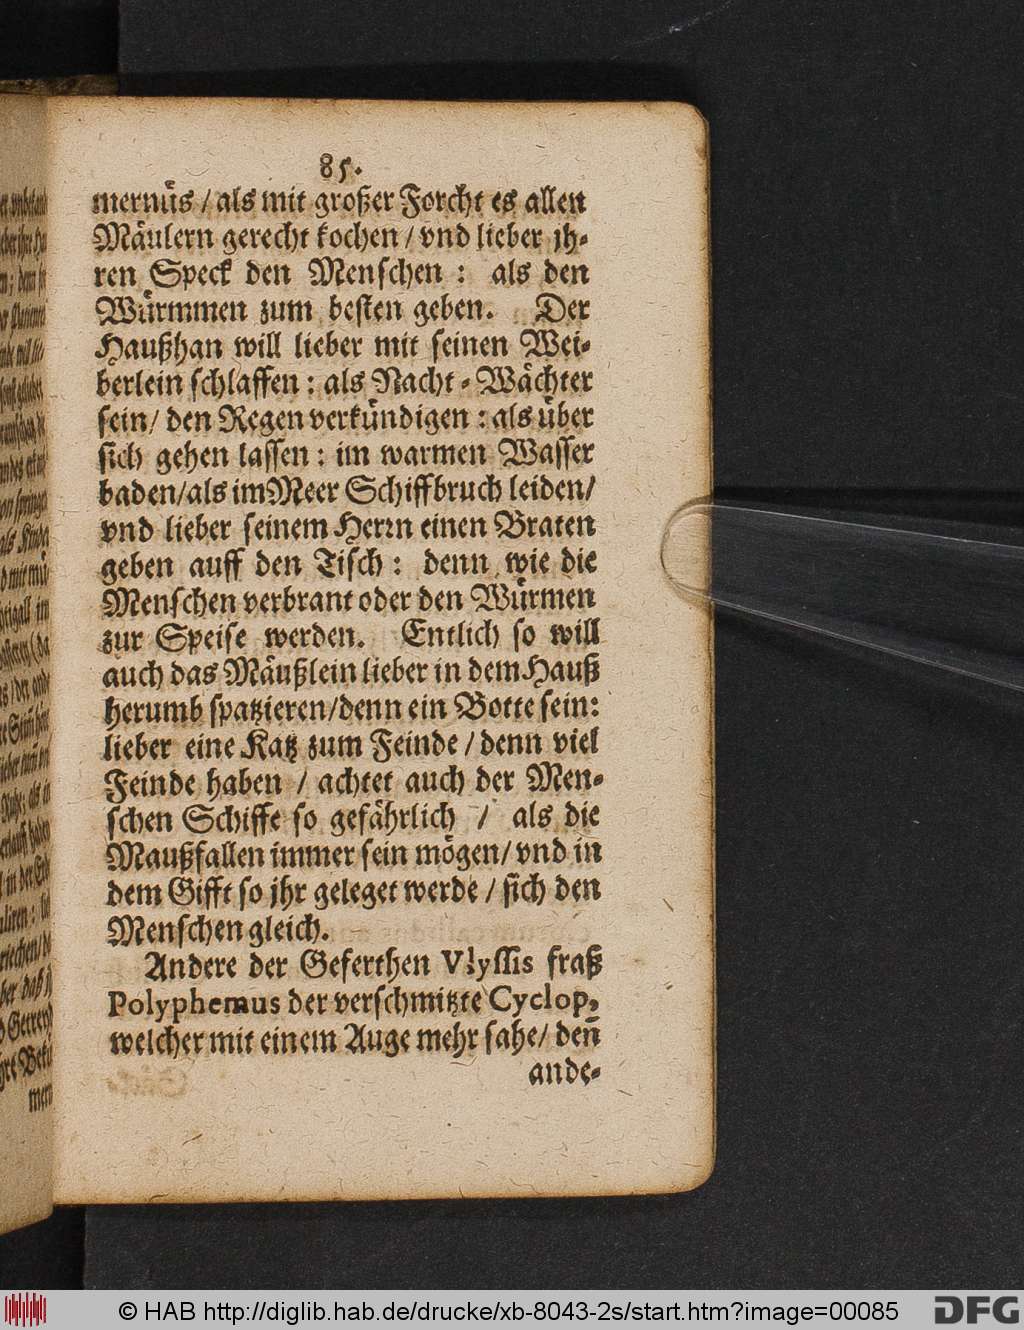 85.
mernüs / als mit großer Forcht es allen
Mäulern gerecht kochen / vnd lieber jh-
ren Speck den Menschen : als den
Würmmen zum besten geben. Der
Haußhan will lieber mit seinen Wei-
berlein schlaffen : als Nacht-Wächter
sein/ den Regen verkündigen : als über
sich gehen lassen : im warmen Wasser
baden/als im Meer Schiffbruch leiden/
vnd lieber seinem Herrn einen Braten
geben auff den Tisch : denn wie die
Menschen verbrant oder den Würmen
zur Speise werden. Entlich so will
auch das Mäußlein lieber in dem Hauß
herumb spatzieren/denn ein Botte sein:
lieber eine Katz zum Feinde / denn viel
Feinde haben / achtet auch der Men-
schen Schiffe so gefährlich / als die
Maußfallen immer sein mögen/ vnd in
dem Gifft so jhr geleget werde / sich den
Menschen gleich.
Andere der Geferthen Vlyssis fraß
Polyphemus der verschmitzte Cyclop,
welcher mit einem Auge mehr sahe/ deñ
ande-
© HAB http://diglib.hab.de/drucke/xb-8043-2s/start.htm?image=00085
DFG